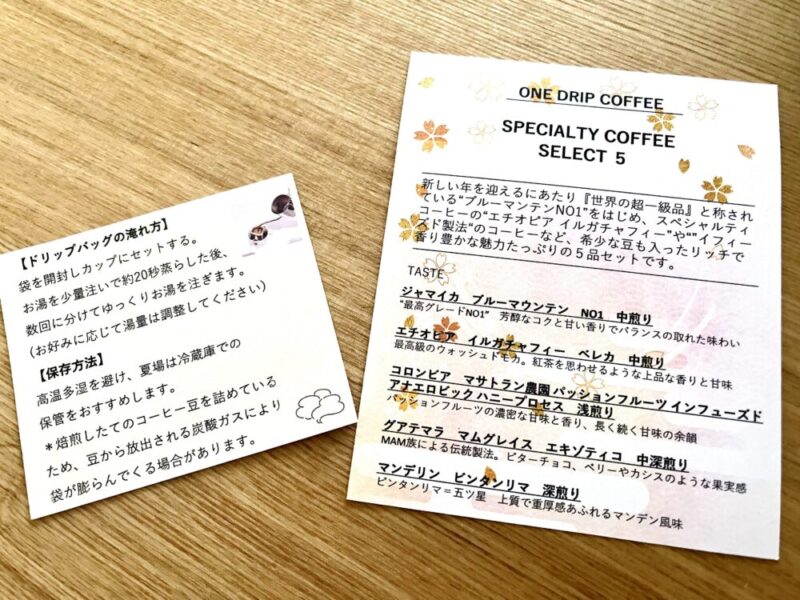 【ドリップバッグの淹れ方】
袋を開封しカップにセットする。
お湯を少量注いで約20秒蒸らした後、
数回に分けてゆっくりお湯を注ぎます。
(お好みに応じて湯量は調整してください)
【保存方法】
高温多湿を避け、夏場は冷蔵庫での
保管をおすすめします。
*焙煎したてのコーヒー豆を詰めている
ため、豆から放出される炭酸ガスにより
袋が膨らんでくる場合があります。
ONE DRIP COFFEE
SPECIALTY COFFEE
SELECT 5
新しい年を迎えるにあたり『世界の超一級品』と称され
ている“ブルーマンテンNO1”をはじめ、スペシャルティ
コーヒーの“エチオピア イルガチャフィー”や“”イフィー
ド製法“のコーヒーなど、希少な豆も入ったリッチで
香り豊かな魅力たっぷりの5品セットです。
TASTE
ジャマイカ ブルーマウンテン NO1 中煎り
“最高グレードNO1” 芳醇なコクと甘い香りでバランスの取れた味わい
エチオピア イルガチャフィー ベレカ 中煎り
最高級のウォッシュドモカ。紅茶を思わせるような上品な香りと甘味
コロンビア マサトラン農園 パッションフルーツ インフューズド
アナエロビック ハニープロセス 浅煎り
パッションフルーツの濃密な甘味と香り、長く続く甘味の余韻
グアテマラ マムグレイス エキゾティコ 中深煎り
MAM族による伝統製法。ビターチョコ、ベリーやカシスのような果実感
マンデリン ビンタンリマ 深煎り
ビンタンリマ=五ツ星 上質で重厚感あふれるマンデン風味